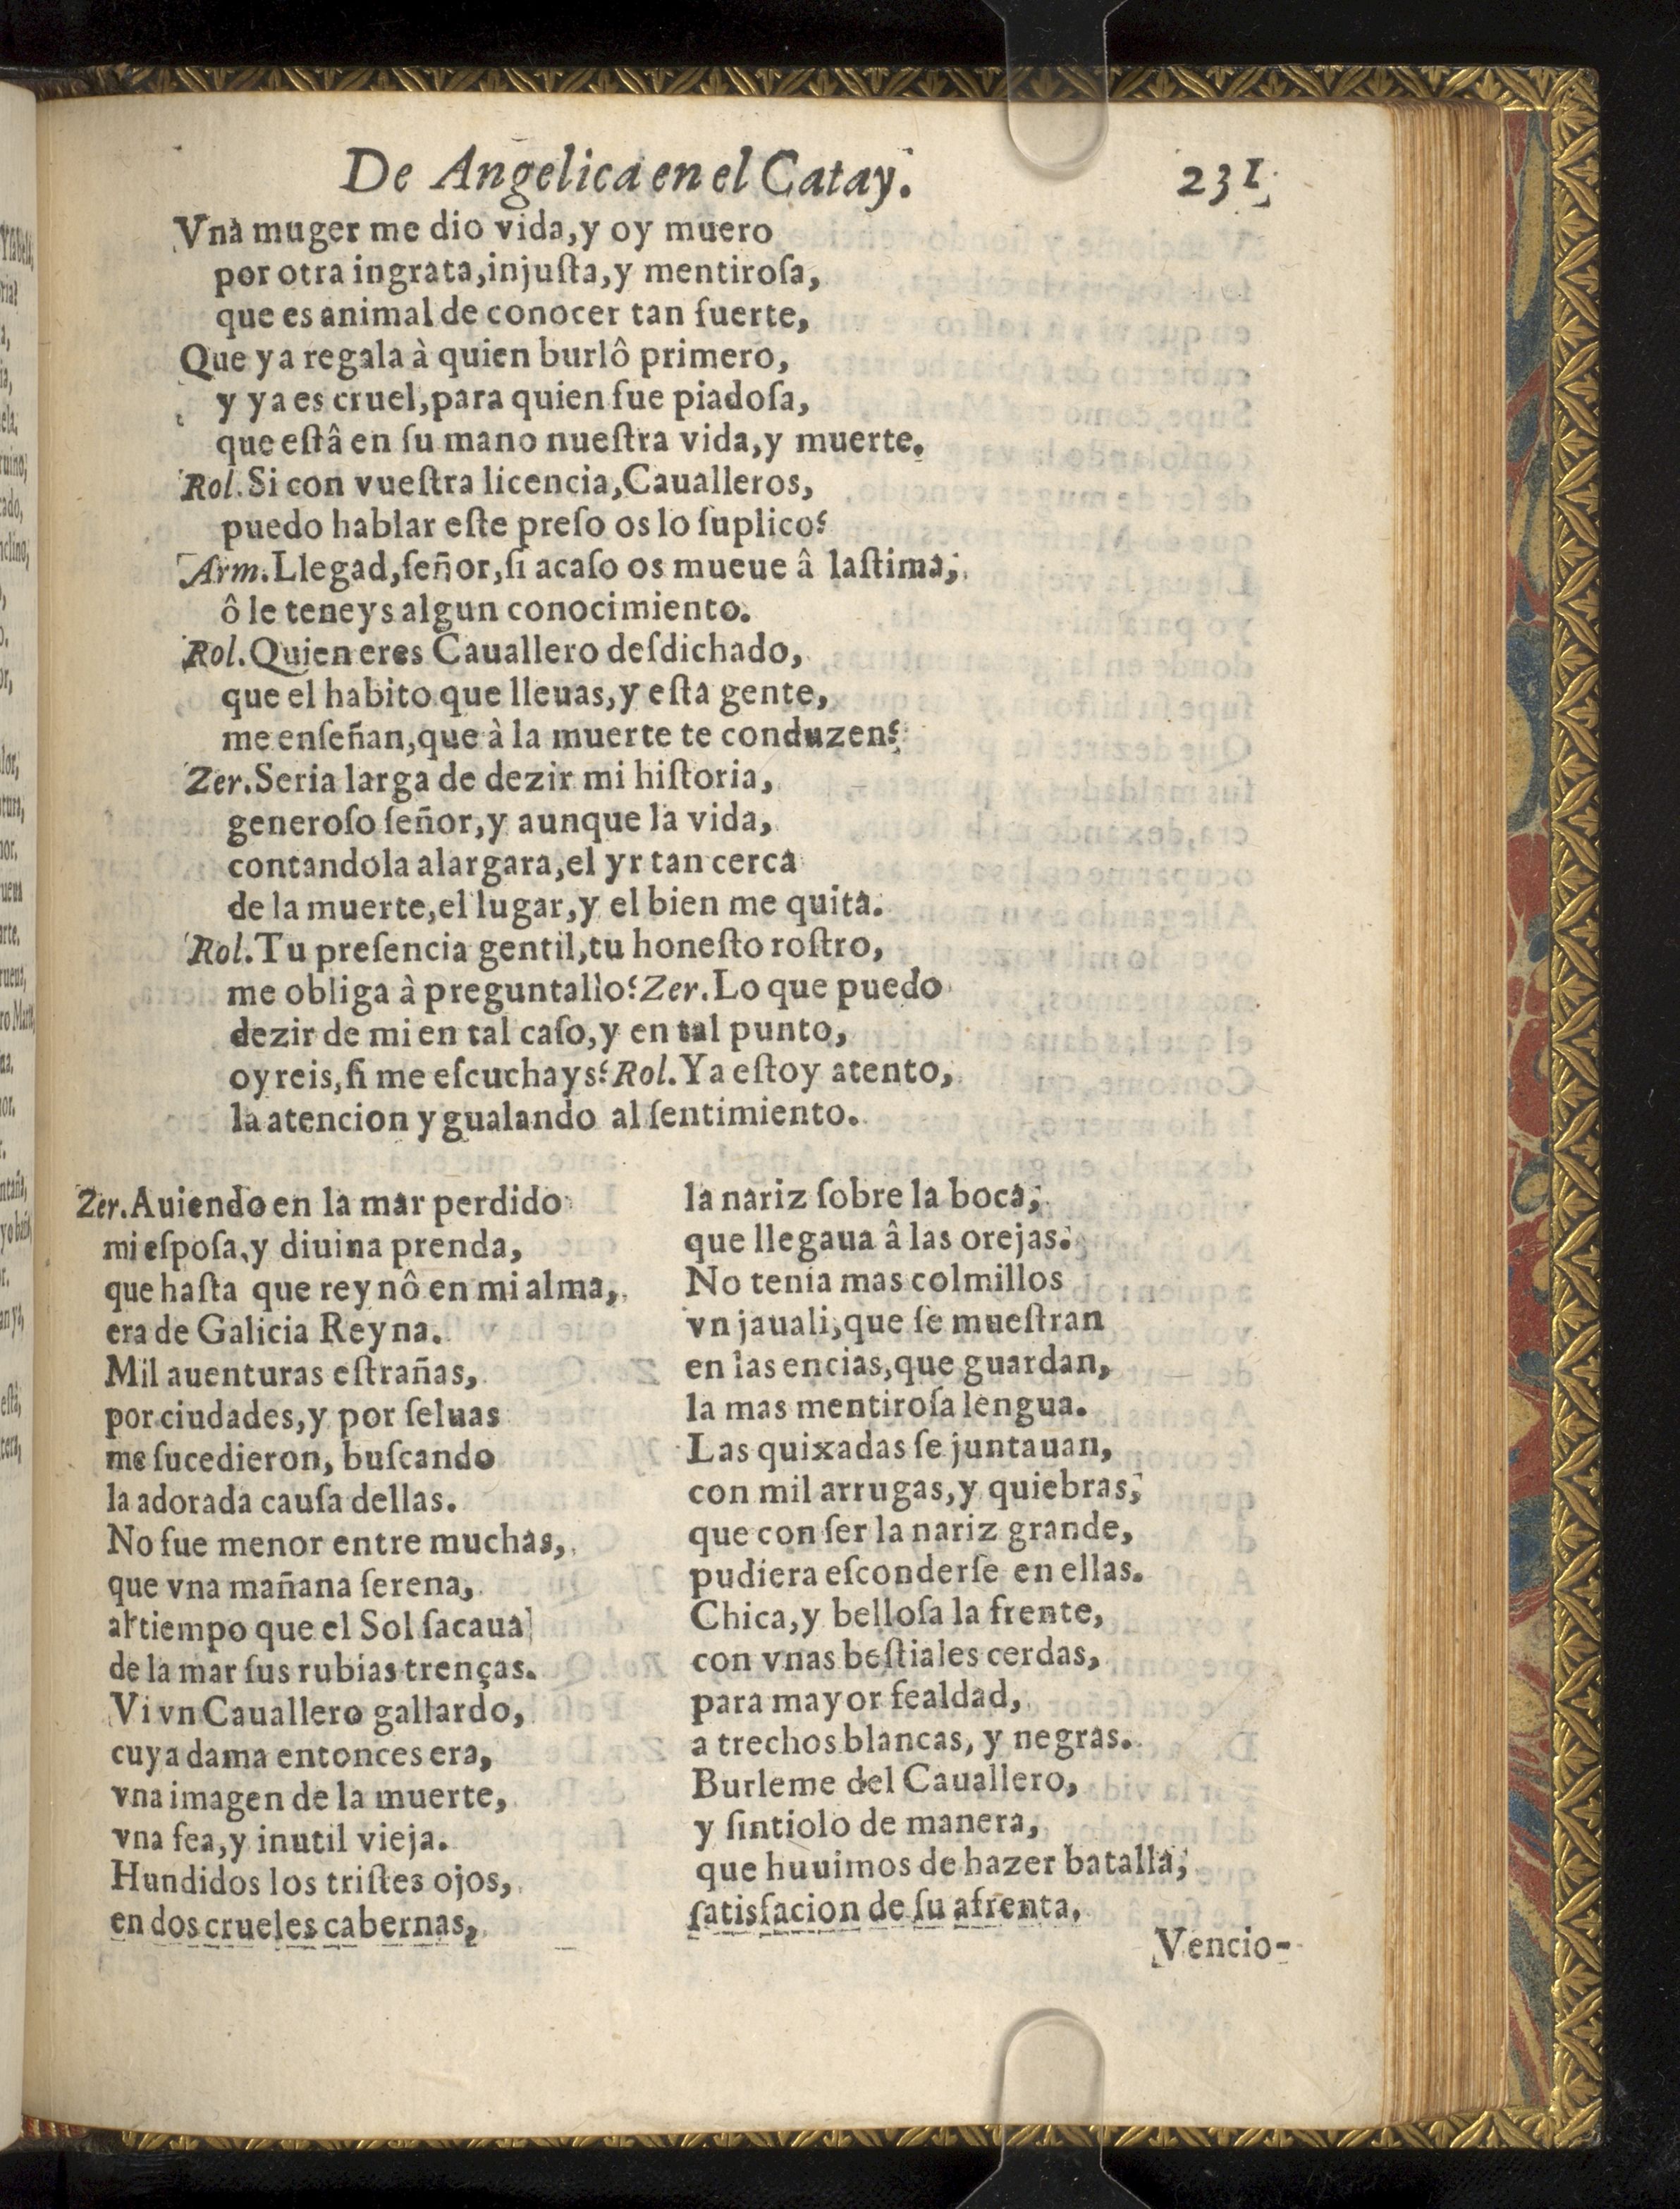 De Angelica en el Catay.
231
Vna muger me dio vida, y oy muero
por otra ingrata, injuſta, y mentiroſa,
que es animal de conocer tan fuerte,
Que ya regala à quien burlô primero,
y ya es cruel, para quien fue piadoſa,
que eſtâ en ſu mano nueſtra vida, y muerte.
Rol. Si con vueſtra licencia, Caualleros,
puedo hablar eſte preſo os lo ſuplico?
Arm. Llegad, ſeñor, ſi acaſo os mueue â laſtima,
ô le teneys algun conocimiento.
Rol. Quien eres Cauallero deſdichado,
que el habito que lleuas, y eſta gente,
me enſeñan, que à la muerte te conduzen?
Zer. Seria larga de dezir mi hiſtoria,
generoſo ſeñor, y aunque la vida,
contandola alargara, el yr tan cerca
de la muerte, el lugar, y el bien me quita.
Rol. Tu preſencia gentil, tu honeſto roſtro,
me obliga à preguntallo? Zer. Lo que puedo
dezir de mi en tal caſo, y en tal punto,
oyreis, ſi me eſcuchays? Rol. Ya eſtoy atento,
la atencion ygualando al ſentimiento.
Zer. Auiendo en la mar perdido
mi eſpoſa, y diuina prenda,
que haſta que reynô en mi alma,
era de Galicia Reyna.
Mil auenturas eſtrañas,
por ciudades, y por ſeluas
me ſucedieron, buſcando
la adorada cauſa dellas.
No fue menor entre muchas,
que vna mañana ſerena,
al tiempo que el Sol ſacaua
de la mar ſus rubias trenças.
Vi vn Cauallero gallardo,
cuya dama entonces era,
vna imagen de la muerte,
vna fea, y inutil vieja.
Hundidos los triſtes ojos,
en dos crueles cabernas,
la nariz ſobre la boca,
que llegaua â las orejas.
No tenia mas colmillos
vn jauali, que ſe mueſtran
en las encias, que guardan,
la mas mentiroſa lengua.
Las quixadas ſe juntauan,
con mil arrugas, y quiebras,
que con ſer la nariz grande,
pudiera eſconderſe en ellas.
Chica, y belloſa la frente,
con vnas beſtiales cerdas,
para mayor fealdad,
a trechos blancas, y negras.
Burleme del Cauallero,
y ſintiolo de manera,
que huuimos de hazer batalla,
ſatisfacion de ſu afrenta,
Vencio-